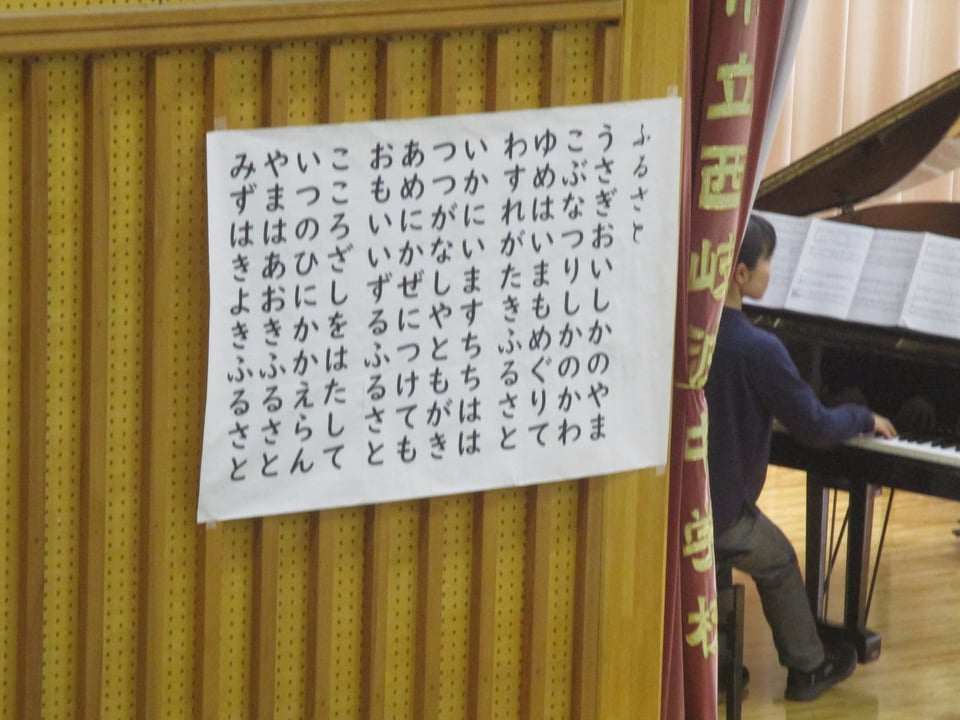 ふるさと
うさぎおいしかのやま
こぶなつりしかのかわ
ゆめはいまもめぐりて
わすれがたきふるさと
いかにいますちちはは
つつがなしやともがき
あめにかぜにつけても
おもいいずるふるさと
こころざしをはたして
いつのひにかかえらん
やまはあおきふるさと
みずはきよきふるさと
市立西岐波中学校